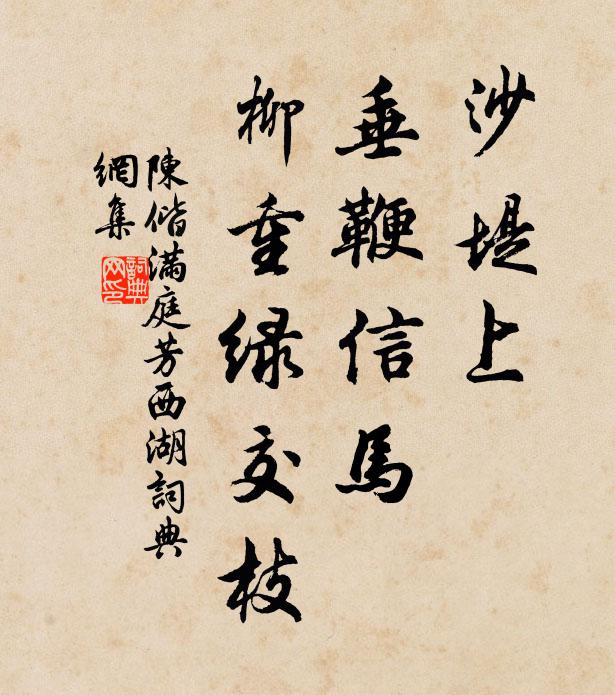 沙堤上
垂鞭信馬
柳重绿交枝
陳偕滿庭芳西湖詞典
網集
詞典
网印